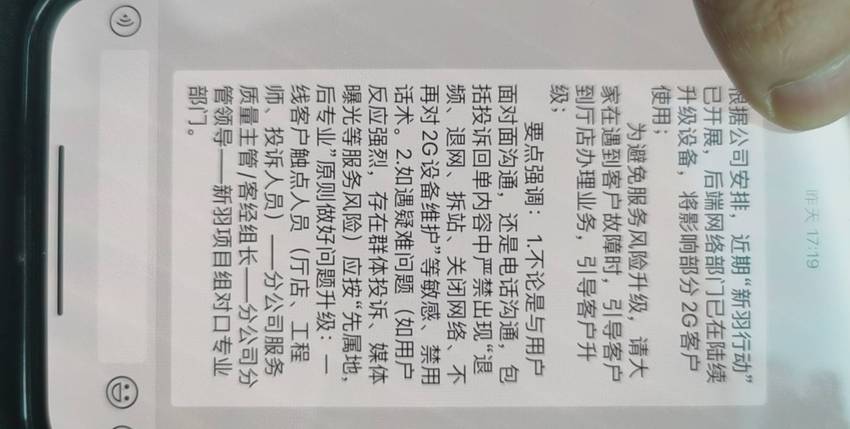 昨天 17:19
根据公司安排，近期“新羽行动”
已开展，后端网络部门已在陆续
升级设备，将影响部分2G客户
使用；
为避免服务风险升级，请大
家在遇到客户故障时，引导客户
到厅店办理业务，引导客户升
级；
要点强调：1.不论是与用户
面对面沟通，还是电话沟通，包
括投诉回单内容中严禁出现“退
频、退网、拆站、关闭网络、不
再对2G设备维护”等敏感、禁用
话术。2.如遇疑难问题（如用户
反应强烈，存在群体投诉、媒体
曝光等服务风险）应按“先属地，
后专业”原则做好问题升级：一
线客户触点人员（厅店、工程
师、投诉人员）——分公司服务
质量主管/客经组长——分公司分
管领导——新羽项目组对口专业
部门。